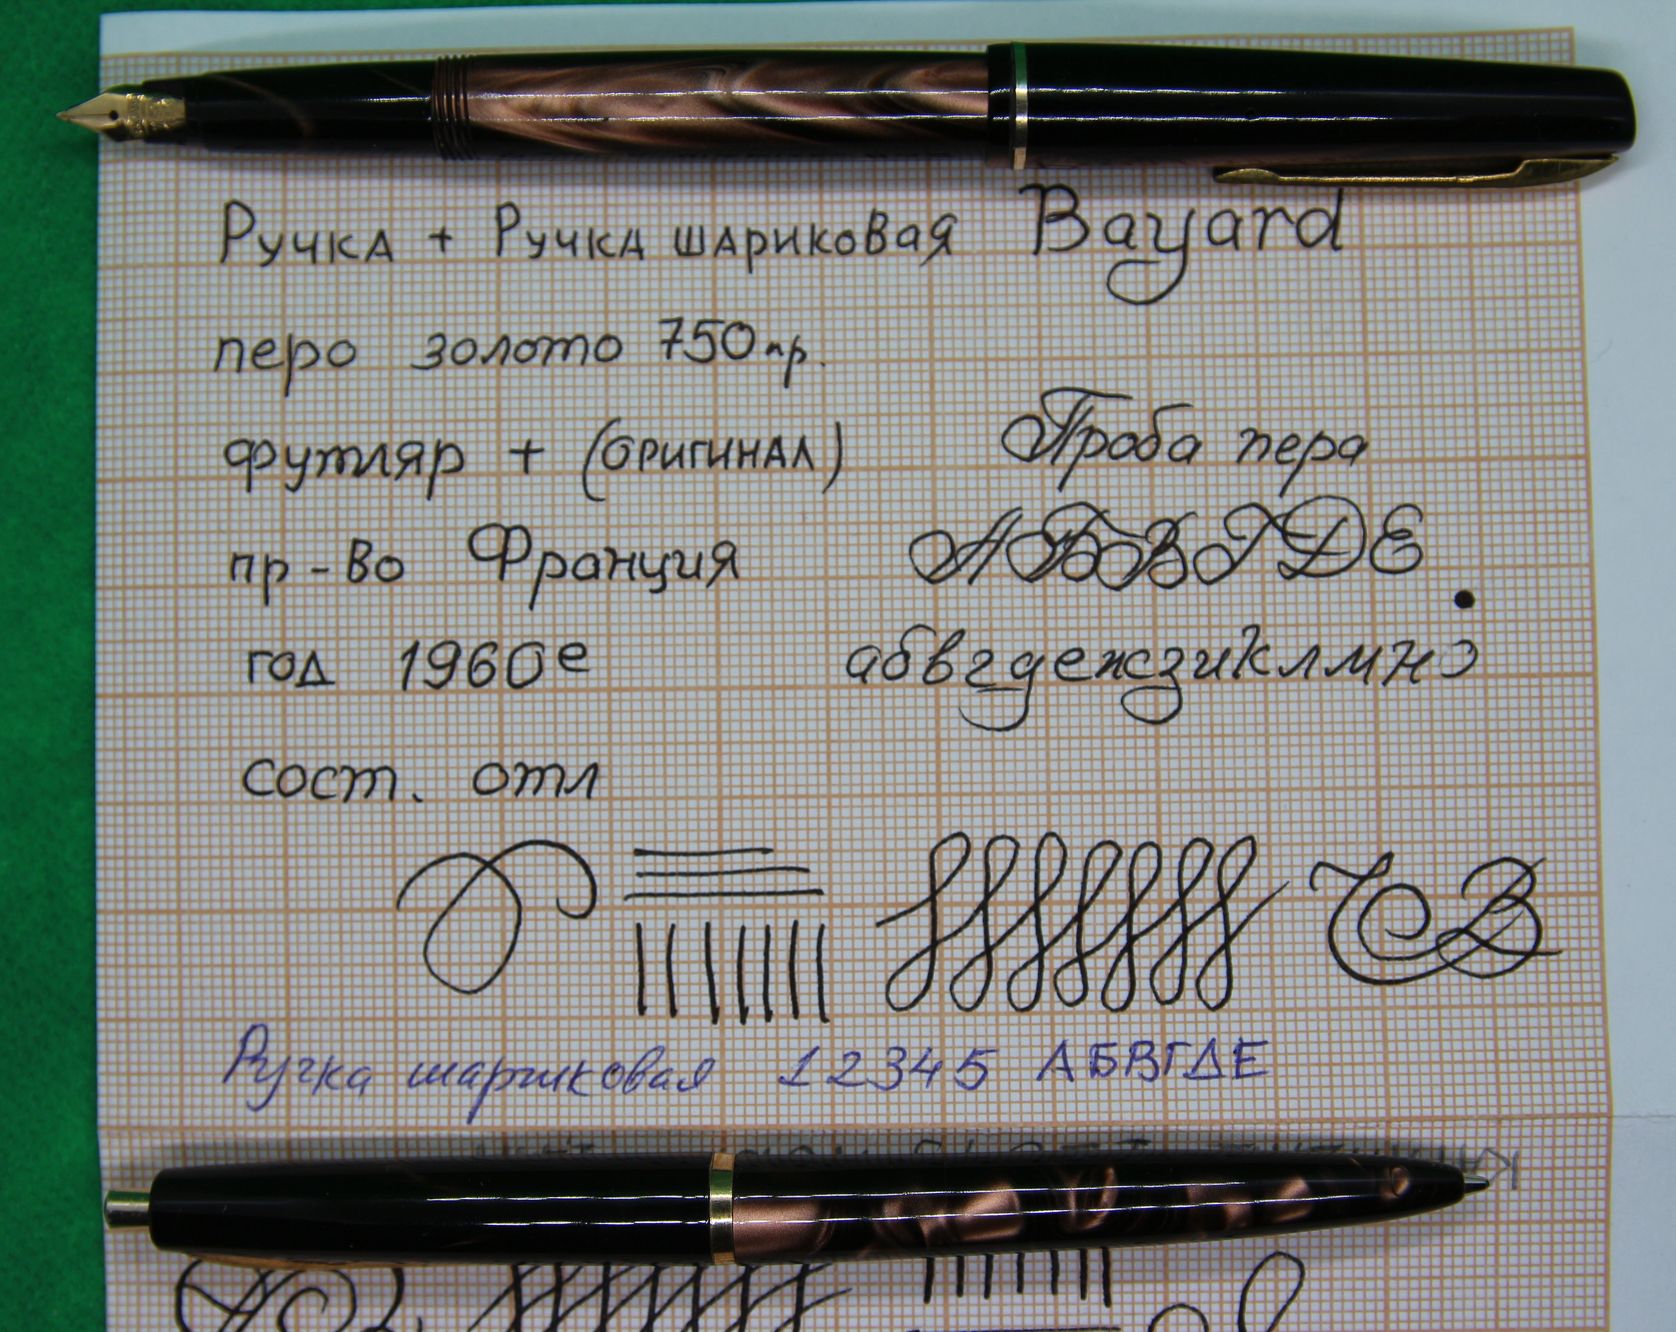 Ручка + Ручка шариковая Bayard
перо золото 750 пр.
футляр + (оригинал)
Проба пера
пр-во Франция
АБВГДЕ
год 1960е
абвгдежзиклмно
сост. отл
Ручка шариковая 12345 АБВГДЕ